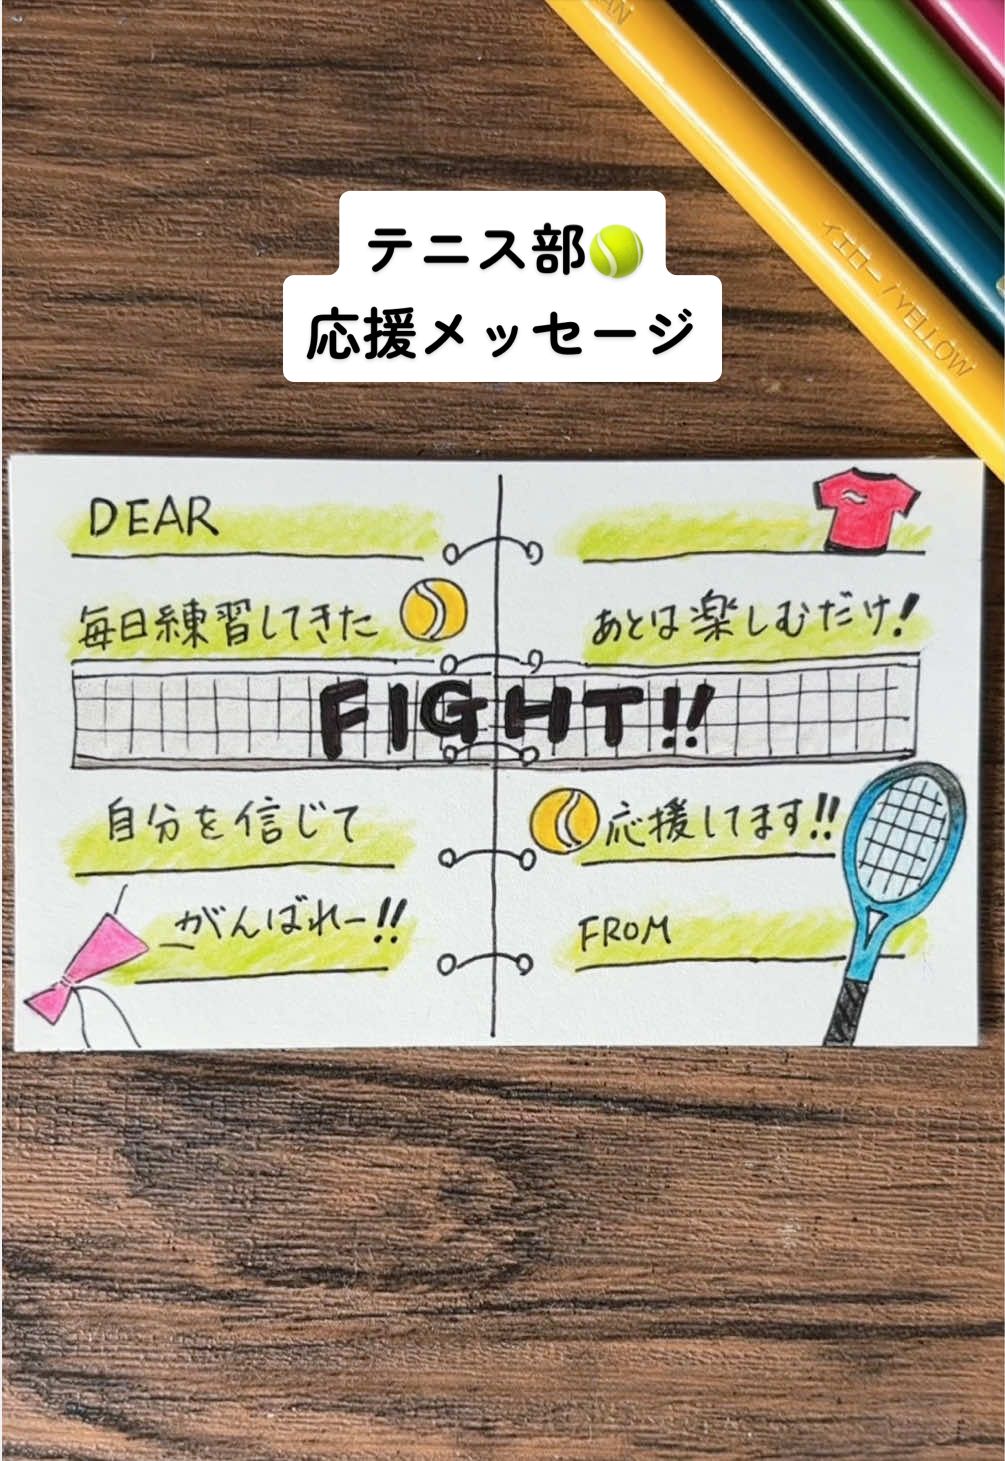 AN
イエロー / YELLOW
テニス部🎾
応援メッセージ
DEAR
毎日練習してきた
あとは楽しむだけ!
FIGHT!!
自分を信じて
がんばれー!!
応援してます!!
FROM